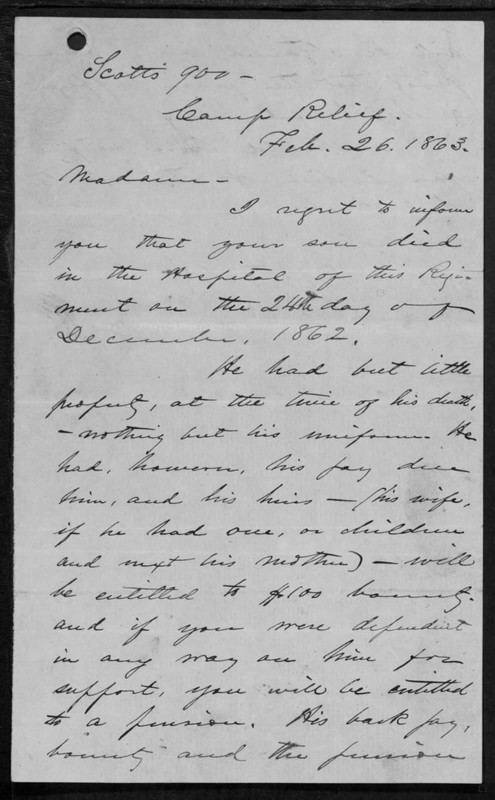 Scott's 900 –
Camp Relief.
Feb. 26. 1863.
Madam –
I regret to inform
you that your son died
in the Hospital of this Regi-
ment on the 24th day of
December, 1862.
He had but little
property, at the time of his death,
– nothing but his uniform. He
had, however, his pay due
him, and his heirs – (his wife,
if he had one, or children
and next his mother) – will
be entitled to $100 bounty.
and if you were dependent
in any way on him for
support, you will be entitled
to a pension. His back pay,
bounty and the pension